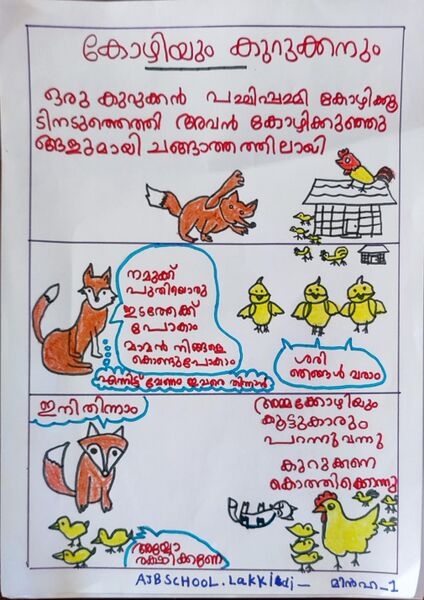 കോഴിയും കുറുക്കനും
ഒരു കുറുക്കൻ പമ്മിപ്പമ്മി കോഴിക്കൂ
ടിനടുത്തെത്തി അവൻ കോഴിക്കുഞ്ഞു
ങ്ങളുമായി ചങ്ങാത്തത്തിലായി
നമുക്ക്
പുതിയൊരു
ഇടത്തേക്ക്
പോകാം
മാമൻ നിങ്ങളെ
കൊണ്ടുപോകാം
എന്നിട്ട് വേണം ഇവരെ തിന്നാൻ
ശരി
ഞങ്ങൾ വരാം
ഇനി തിന്നാം
അമ്മക്കോഴിയും
കൂട്ടുകാരും
പറന്നുവന്നു
കുറുക്കനെ
കൊത്തിക്കൊന്നു
അയ്യോ
രക്ഷിക്കണേ
AJBSCHOOL.Lakkidi_ മിൻഹ_1